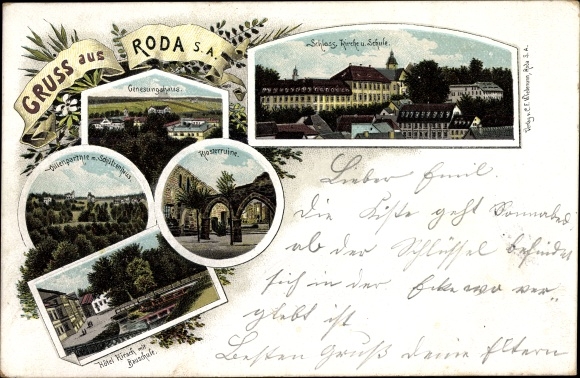 GRUSS aus
RODA S.A.
Schloss, Kirche u. Schule.
Genesungshaus.
Villenparthie m. Schützenhaus.
Klosterruine.
Hôtel Hirsch mit
Bauschule.
Verlag v. C.F. Wiedemann, Roda S.A.
Lieber Emil.
Die Kiste geht Sonnabend
ab der Schlüssel befindet
sich in der Ecke wo ver-
klebt ist
Besten Gruß deine Eltern